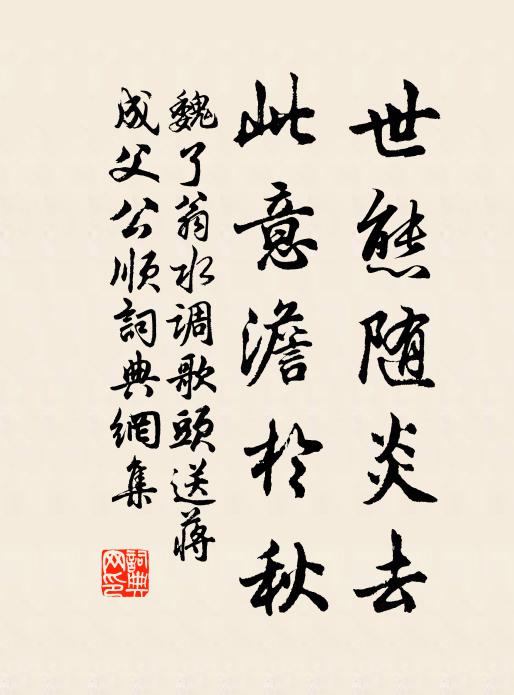 世態随炎去
此意澹於秋
魏了翁水调歌頭送蔣
成父公順詞典網集
詞典
网印